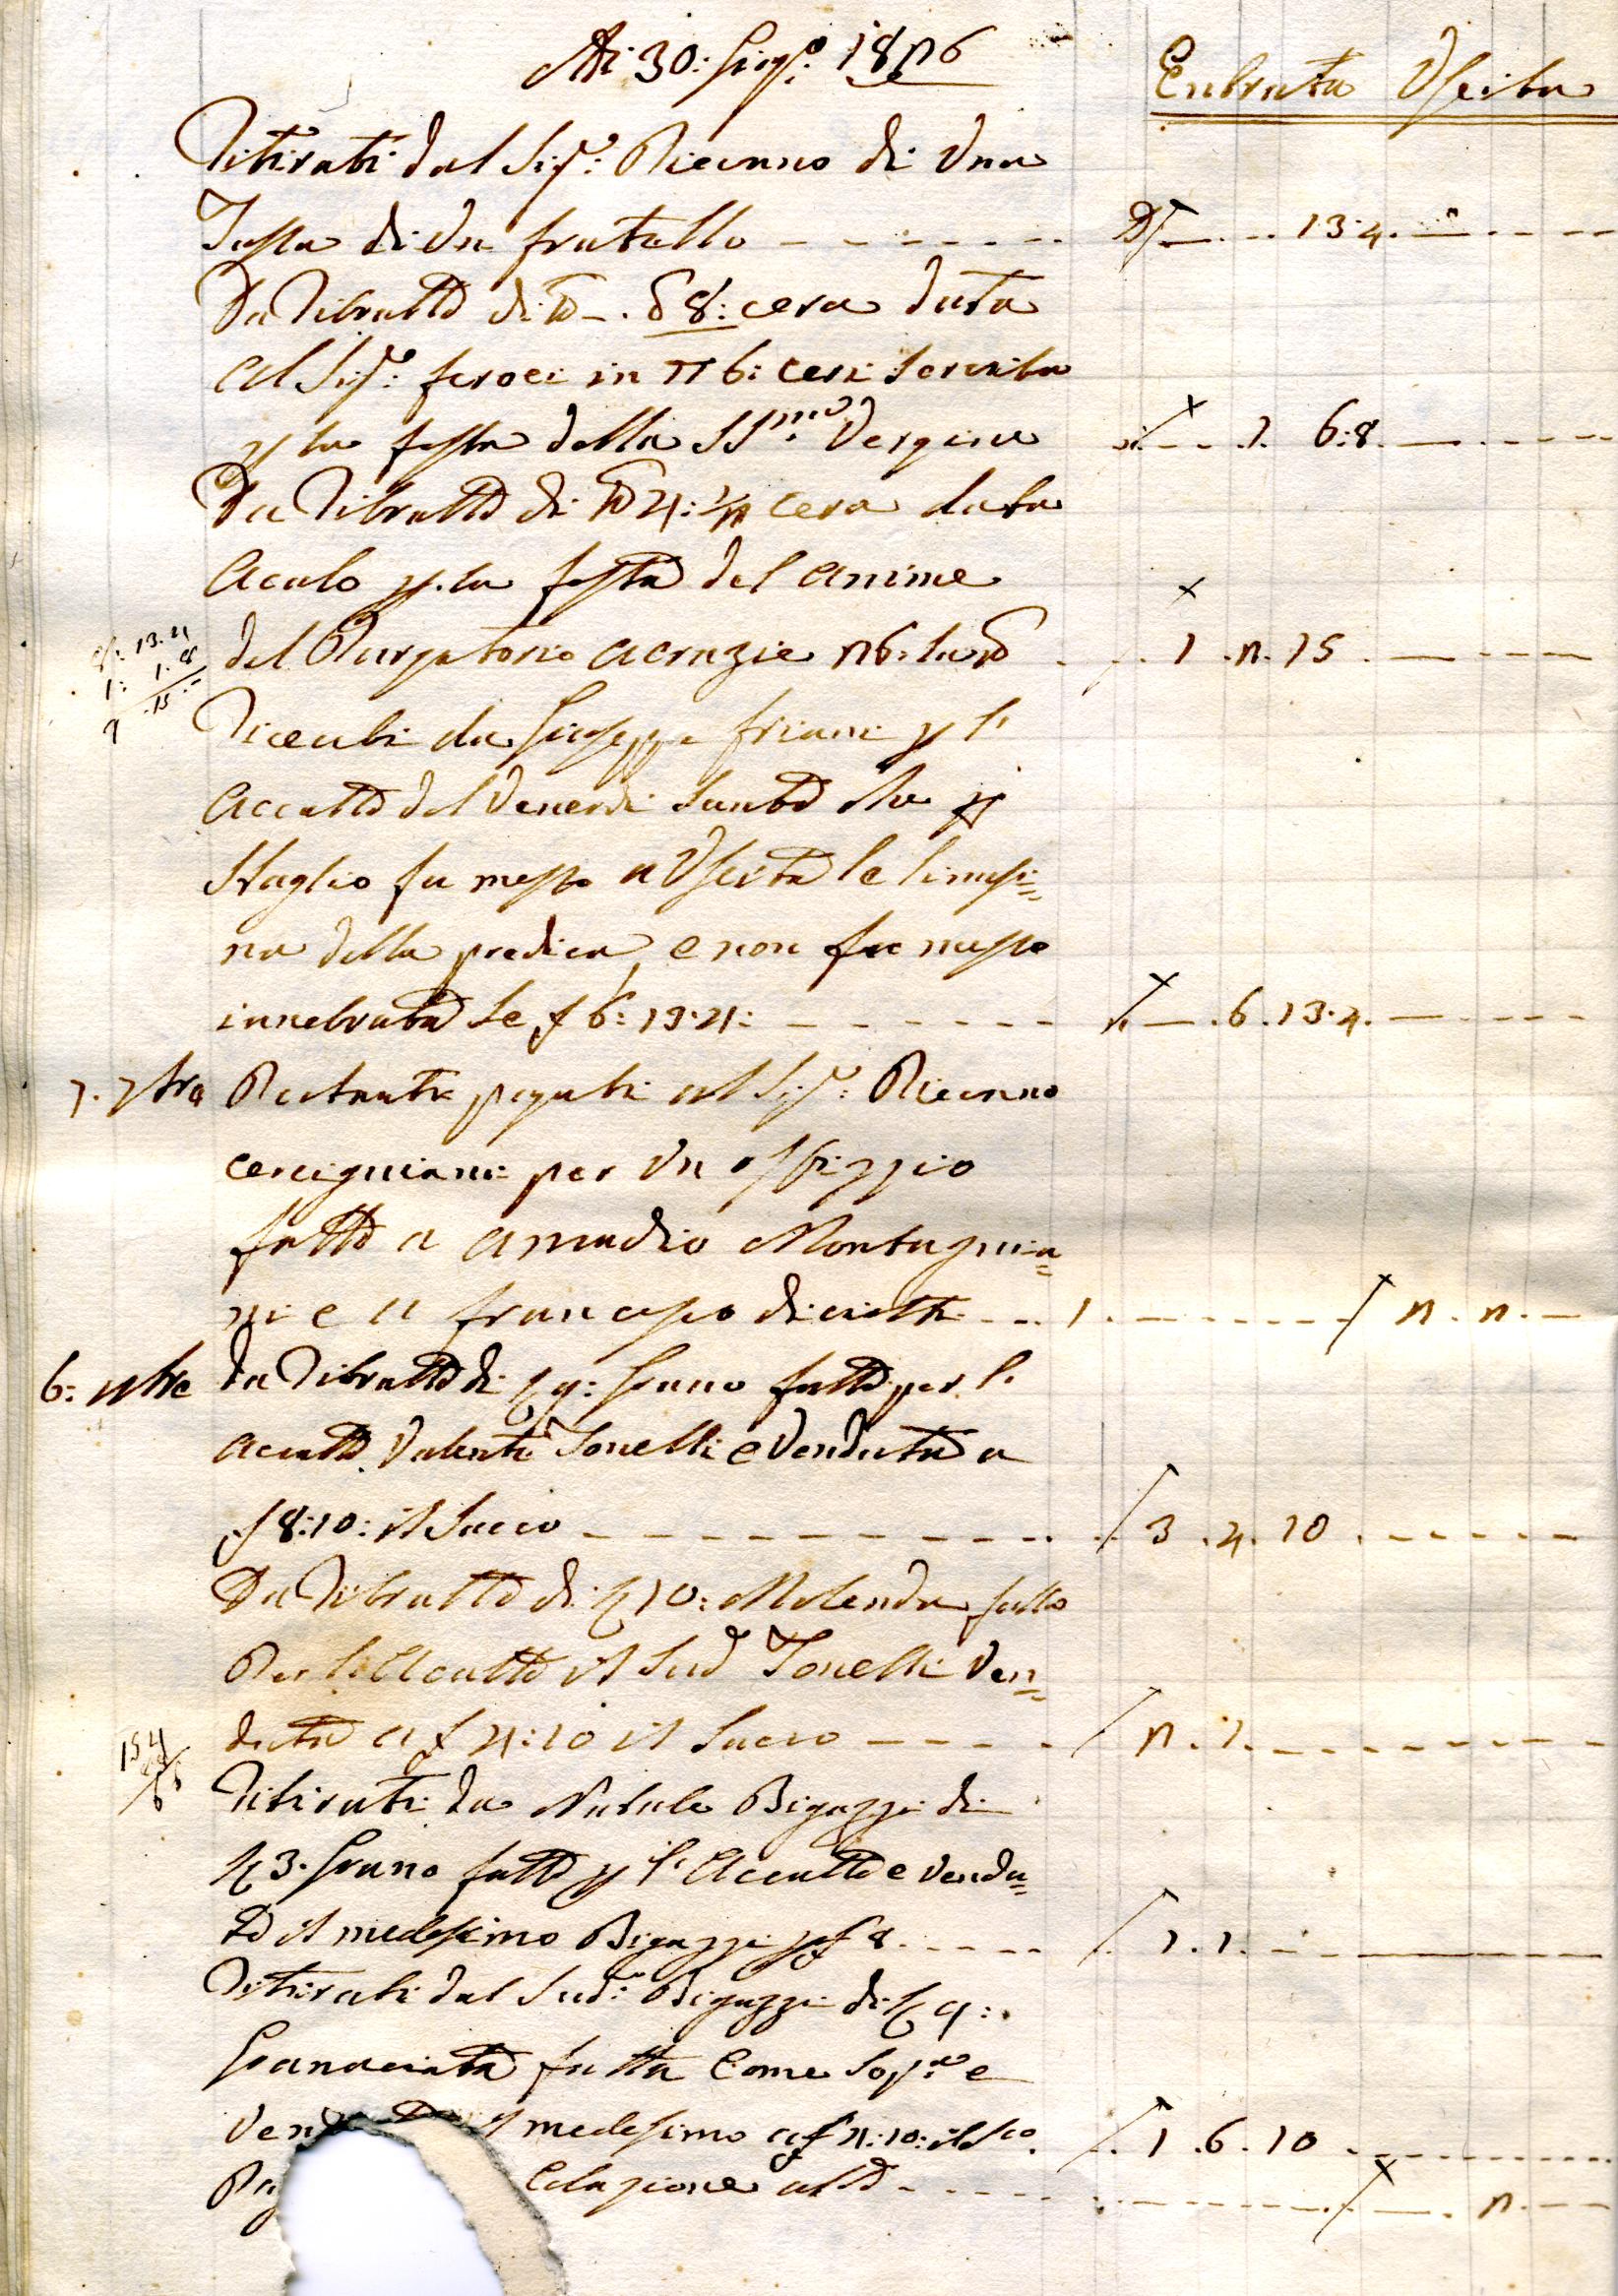 Adi 30: Giug.o 1826
Entrata Uscita
Ritirati dal Sig.e Piecanno di Una
Tassa di Un fratello 13:4.
Da Ritratto di 8: cera data
al Sig.e feroci in n 6: ceri servita
p la festa della SS.ma Vergine 1. 6:8.
Da Ritratto di 4: 1/2 cera data
Acalo p. la festa del anime
del Purgatorio a crazie 26: la 1 . 2 . 15
13.4
1: 1.8
15
Riceuti da Giuseppe friani p l'
Accatto del Venerdi Santo che p
Staglio fu messo a Uscita le limosi=
na della predica, e non fu messo
innetrata le £ 6: 13:4: 6 . 13 . 4.
1. 7bre Portanti pagati al Sig.e Piecanno
cercigniani per Un offizzio
fatto a amadio Montagnia=
ni e a francesco diciotti 2 . 2 .
6: 9bre da Ritratto di 9: Grano fatto per l'
acatto Valente Tonelli e Venduto a
£ 8:10: il Sacco 3 . 4 . 10
Da Ritratto di 10: Melenda fatto
Per l'Acatto il Sud Tonelli Ven=
duto a £ 4:10 il Sacco 2 . 1 .
154
Ritirati da Natale Bigazzi di
3. Grano fatto p l' Accatto e vendu=
to il medesimo Bigazzi p £ 8 1 . 1 .
Ritirati dal Sud.o Bigazzi di 9:
Granaciata fatta Come Sop.a e
Ven medesimo a £ 4:10: il S.co 1 . 6 . 10
Colazione 2 .